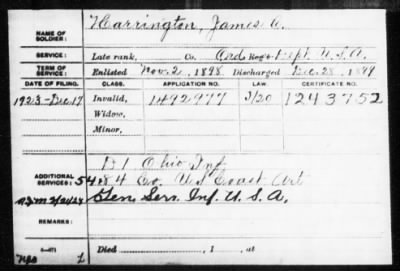 NAME OF SOLDIER: Harrington, James A.
SERVICE: Late rank, Co. Ord Reg't Dept. U.S.A.
TERM OF SERVICE: Enlisted Nov. 2, 1898 Discharged Dec. 28, 1899
DATE OF FILING. CLASS. APPLICATION NO. LAW. CERTIFICATE NO.
1923-Dec.17 Invalid, 1492977 1243752
Widow,
Minor,
D 1 Ohio Inf.
ADDITIONAL SERVICES: 54 & 84 Co. U.S. Coast Art
Gen. Serv. Inf. U.S.A.
REMARKS:
Died , 1 , at